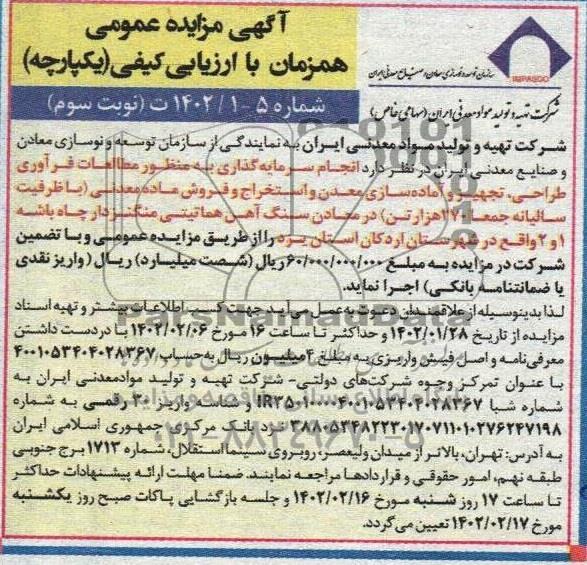 آگهی مزایده عمومی
همزمان با ارزیابی کیفی (یکپارچه)
شماره ۵-۱/۱۴۰۲ ت (نوبت سوم)
IMPASCO
سازمان توسعه و نوسازی معادن و صنایع معدنی ایران
شرکت تهیه و تولید مواد معدنی ایران (سهامی خاص)
شرکت تهیه و تولید مواد معدنی ایران به نمایندگی از سازمان توسعه و نوسازی معادن
و صنایع معدنی ایران در نظر دارد انجام سرمایه گذاری به منظور مطالعات فرآوری
طراحی، تجهیز و آماده سازی معدن و استخراج و فروش ماده معدنی (با ظرفیت
سالیانه جمعا ۲۷۰ هزار تن) در معادن سنگ آهن هماتیتی منگنز دار چاه باشه
۱ و ۲ واقع در شهرستان اردکان استان یزد را از طریق مزایده عمومی و با تضمین
شرکت در مزایده به مبلغ ۶۰/۰۰۰/۰۰۰/۰۰۰ ریال (شصت میلیارد) ریال (واریز نقدی
یا ضمانتنامه بانکی) اجرا نماید.
لذا بدینوسیله از علاقمندان دعوت به عمل می آید جهت کسب اطلاعات بیشتر و تهیه اسناد
مزایده از تاریخ ۱۴۰۲/۰۱/۲۸ و حداکثر تا ساعت ۱۶ مورخ ۱۴۰۲/۰۲/۰۶ با در دست داشتن
معرفی نامه و اصل فیش واریزی به مبلغ ۴ میلیون ریال به حساب ۴۰۰۱۰۵۳۴۰۴۰۲۸۳۶۷
با عنوان تمرکز وجوه شرکت های دولتی- شرکت تهیه و تولید مواد معدنی ایران به
شماره شبا IR۳۵۰۱۰۰۰۰۴۰۰۱۰۵۳۴۰۴۰۲۸۳۶۷ و شناسه واریز ۳۰ رقمی به شماره
۳۸۸۰۵۳۴۸۲۲۲۰۱۷۰۷۱۱۰۱۰۲۷۶۲۴۷۱۹۸ نزد بانک مرکزی جمهوری اسلامی ایران
به آدرس: تهران، بالاتر از میدان ولیعصر، روبروی سینما استقلال، شماره ۱۷۱۳ برج جنوبی
طبقه نهم، امور حقوقی و قراردادها مراجعه نمایند. ضمنا مهلت ارائه پیشنهادات حداکثر
تا ساعت ۱۷ روز شنبه مورخ ۱۴۰۲/۰۲/۱۶ و جلسه بازگشایی پاکات صبح روز یکشنبه
مورخ ۱۴۰۲/۰۲/۱۷ تعیین می گردد.
ParsNamadData
۰۲۱-۸۸۳۴۹۶۷۰-۵